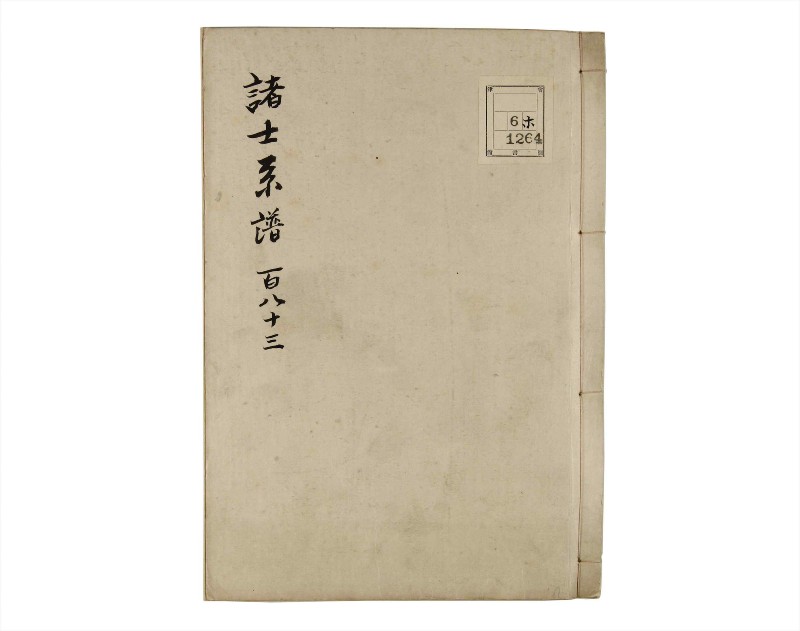 諸士系譜 百八十三
6 ホ
1264